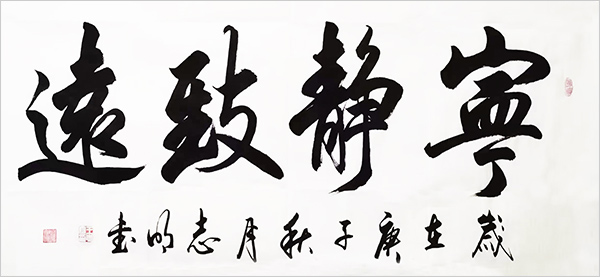 寧靜致遠
歲在庚子秋月志明書